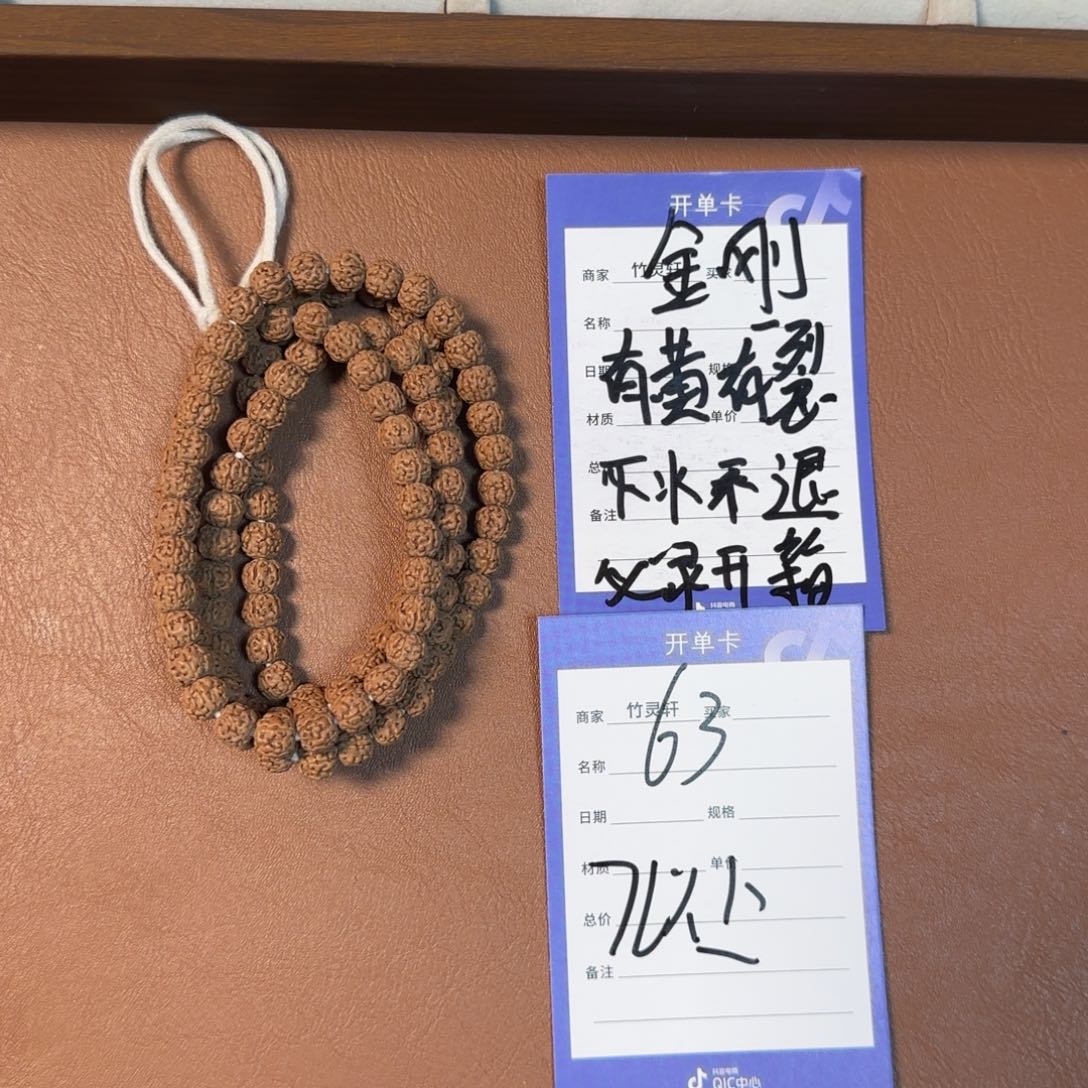 开单卡
商家 竹灵轩 买家
金刚
名称
日期 规格
有黄有裂
材质 单价
总
下水不退
备注
父录开
抖音电商
开单卡
商家 竹灵轩 买家
63
名称
日期 规格
材质 单价
总价
备注
抖音电商
QIC中心